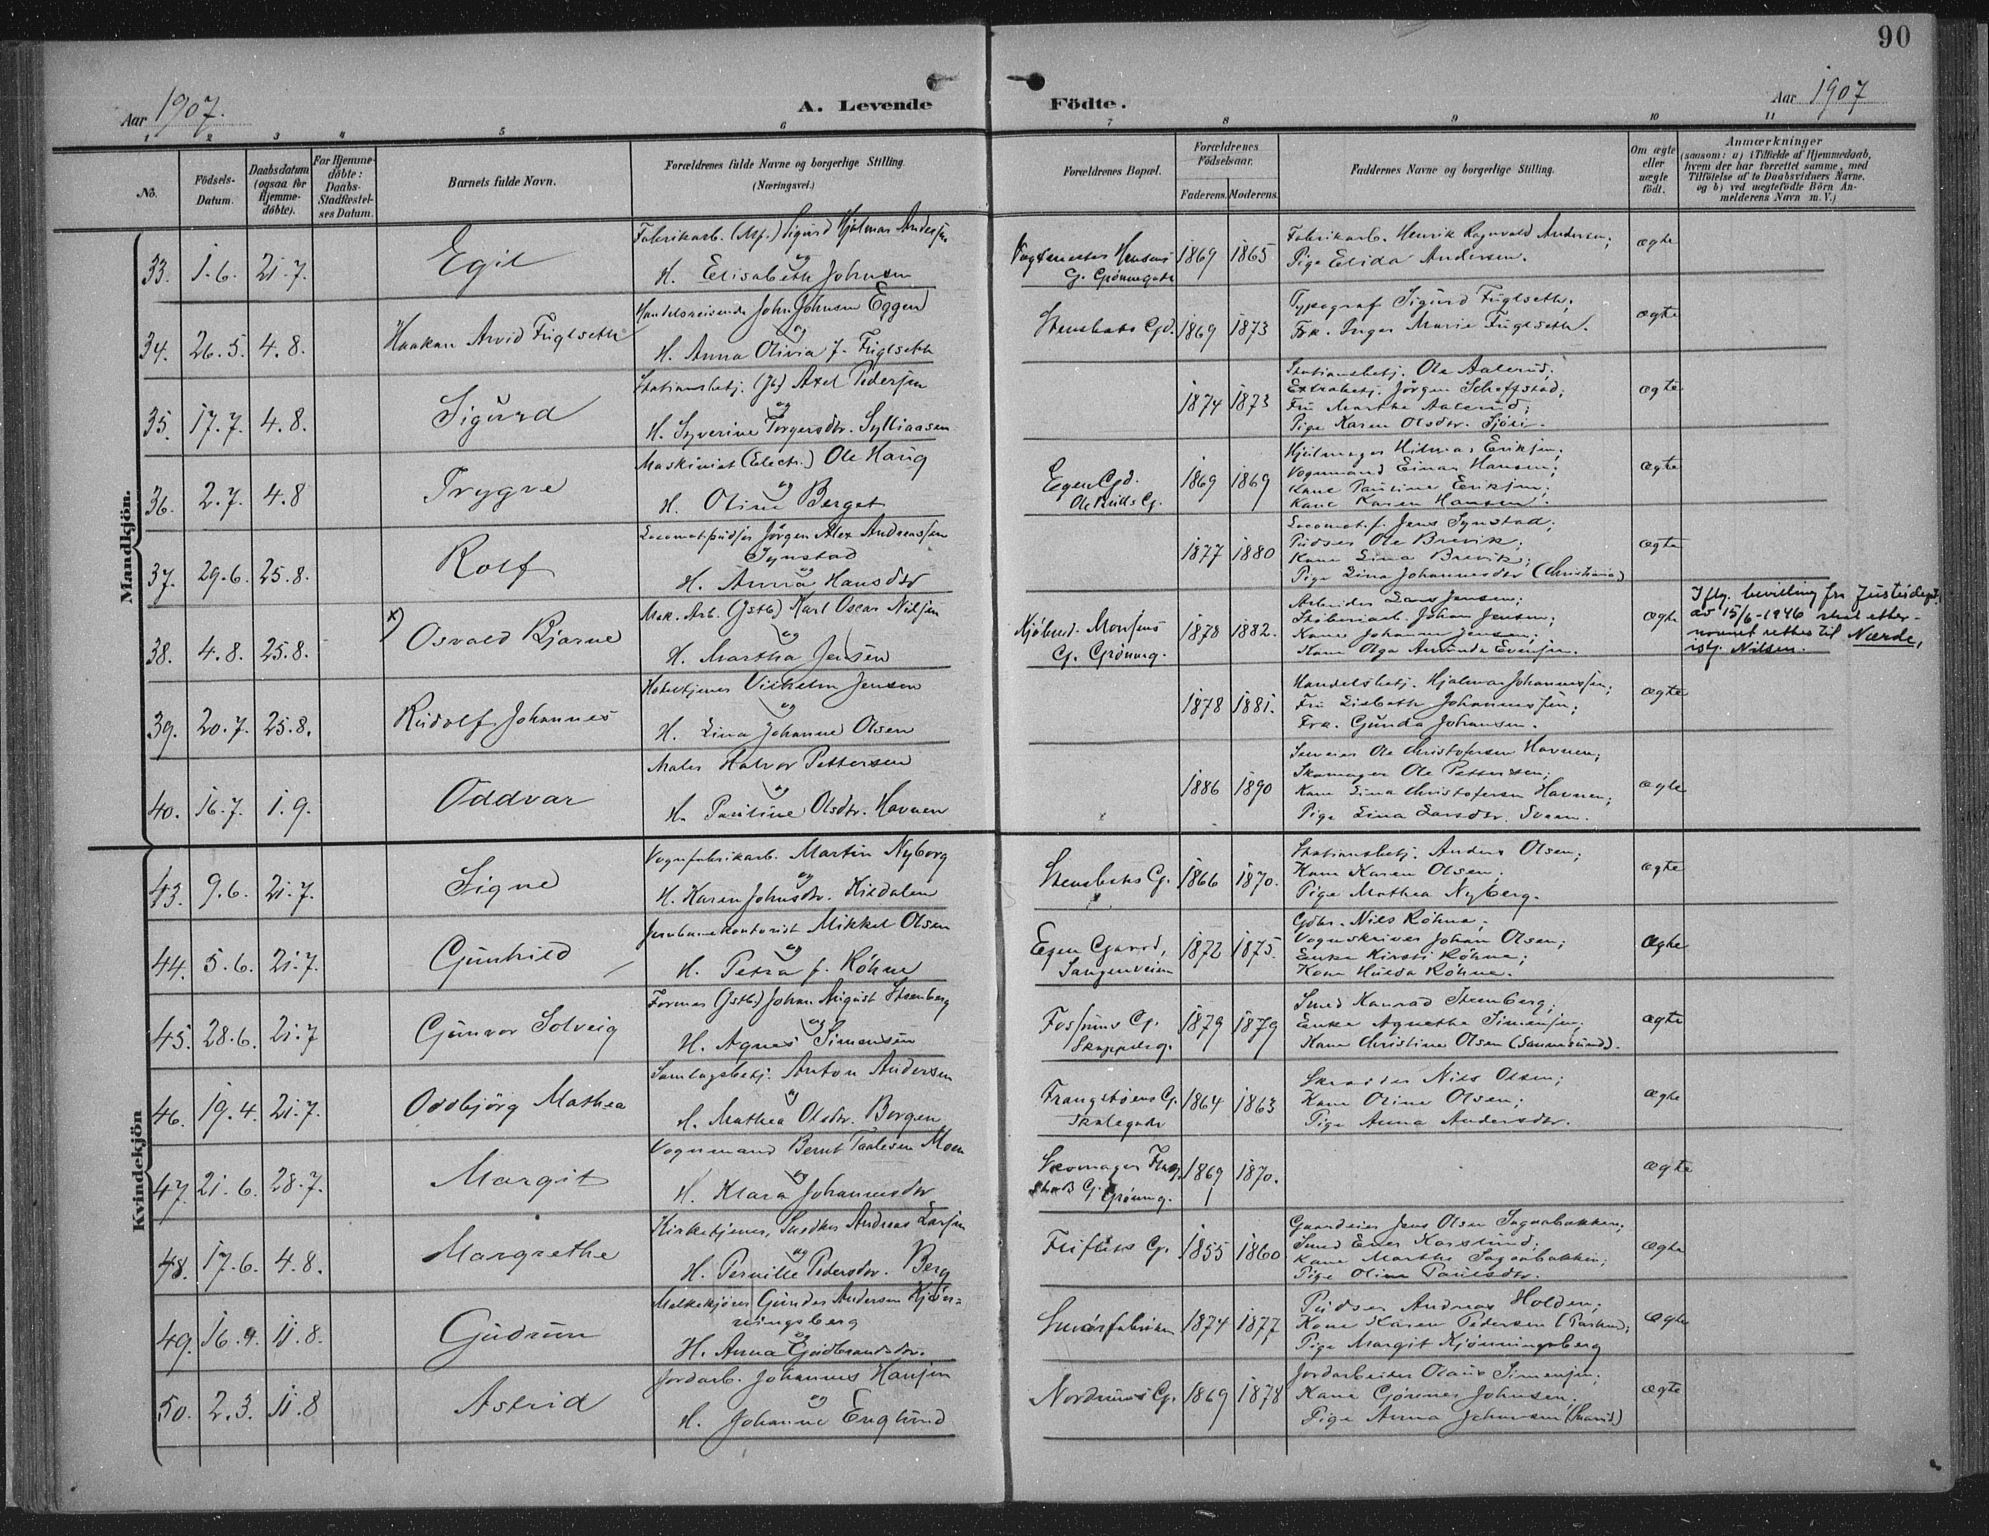 90
Aar 1907.
A. Levende Födte.
Aar 1907
1 2 3 4 5 6 7 8 9 10 11
No.
Födsels-Datum.
Daabsdatum (ogsaa for Hjemme-döbte).
For Hjemme-döbte: Daabs-Stadfæstel-ses Datum.
Barnets fulde Navn.
Forældrenes fulde Navne og borgerlige Stilling. (Næringsvei.)
Forældrenes Bopæl.
Forældrenes Födselsaar.
Faderens. Moderens.
Faddernes Navne og borgerlige Stilling.
Om ægte eller uægte födt.
Anmærkninger
(saasom: a) i Tilfælde af Hjemmedaab, hvem der har forrettet samme, med Tilföielse af to Daabsvidners Navne, og b) ved uægtefödte Börn Anmelderens Navn m. V.)
Mandkjön.
33. 1.6. 21.7. Egil
Fabrikarb. Sigurd Hjalmar Andersen
og
H. Elisabeth Johnsen
G. Grönnegade
1869 1865
Fabrikarb. Henrik Ragnvald Andersen;
Pige Elida Andersen.
ægte
34. 26.5. 4.8. Haakon Arvid Fuglseth
Handelsreisende John Johnsen Eggen
og
H. Anna Olivia J. Fuglseth
Stensbaks Gd.
1869 1873
Typograf Sigurd Fuglseth;
Frk. Inger Marie Fuglseth.
ægte
35. 17.7. 4.8. Sigurd
Stationsbetj. (Jb) Axel Pedersen
og
H. Syverine Torgersdtr. Sylliaasen
1874 1873
Stationsbetj. Ole Aalerud;
Extrabetj. Jörgen
Fru Marthe Aalerud;
Pige Karen Olsdtr.
ægte
36. 2.7. 4.8 Trygve
Maskinist (Electr.) Ole Haug
og
H. Oline Berget
Egen Gd.
1869 1869
Hjulmager Hilmar Eriksen;
Vognmand Einar Hansen;
Kone Pauline Eriksen;
Kone Karen Hansen.
ægte
37. 29.6. 25.8. Rolf
Locomotivpudser Jörgen Alex Andreassen
Synstad
og
H. Anna Hansdtr
1877 1880
Locomot.f. Jens Synstad;
Pudser Ole Brevik;
Kone Lina Brevik;
Pige Lina Johannesdtr (Christiania)
ægte
38. 4.8. 25.8. x) Osvald Bjarne
Mek. Arb. (Jstb) Karl Oscar Nilsen
og
H. Martha Jensen
G. Grönneg.
1878 1882.
Arbeider Lars Jensen;
Stöberiarb. Johan Jensen;
Kone Johanne Jensen;
Kone Olga Amunda Evensen.
ægte
Iflg. bevilling fra Justisdept.
av 15/6-1946 skal etter-
navnet rettes til Nærde,
istf. Nilsen.
39. 20.7. 25.8. Rudolf Johannes
Hoteltjener Vilhelm Jensen
og
H. Lina Johanne Olsen
1878 1881.
Handelsbetj. Hjalmar Johannessen;
Fru Lisbeth Johannessen;
Frk. Gunda Johansen.
ægte
40. 16.7. 1.9. Oddvar
Maler Halvor Pettersen
og
H. Pauline Olsdtr. Havnen
1886 1890
Ole Christofersen Havnen;
Skomager Ole Pettersen;
Kone Lina Christofersen Havnen;
Pige Lina Larsdtr. Sveen.
ægte
Kvindekjön
43. 9.6. 21.7. Signe
Vognfabrikarb. Martin Nyborg
og
H. Karen Johnsdtr. Kildalen
Stensbaks G.
1866 1870.
Stationsbetj. Anders Olsen;
Kone Karen Olsen;
Pige Mathea Nyberg.
ægte
44. 5.6. 21.7. Gunhild
Jernbanekontorist Mikkel Olsen
og
H. Petra f. Röhne
Egen Gaard,
Vangenveien
1872 1875.
Gdbr. Nils Röhne;
Vognskriver Johan Olsen;
Enke Kirsti Röhne;
Kone Hulda Röhne.
ægte
45. 28.6. 21.7 Gunvor Solveig
Former (Jstb) Johan August Steenberg
og
H. Agnes Simensen
Fossums G.
1879 1879
Smed Konrad Steenberg;
Enke Agnethe Simensen;
Kone Christine Olsen (Sannesund).
ægte
46. 19.4. 21.7. Oddbjörg Mathea
Samlagsbetj. Anton Andersen
og
H. Mathea Olsdtr. Borgen
Frangstöens G.
Skolegade
1864 1863
Skræder Nils Olsen;
Kone Oline Olsen;
Pige Anna Andersdtr.
ægte
47. 21.6. 28.7. Margit
Vognmand Bernt Paulsen Moen
og
H. Klara Johannesdtr
Skomager
G. Grönneg.
1869 1870.
ægte
48. 17.6. 4.8. Margrethe
Kirketjener, Snedker Andreas Larsen
og Berg
H. Pernille Pedersdtr.
1855 1860
Gaardeier Jens Olsen Sagaabakken;
Smed Even Karslund;
Kone Marthe Sagaabakken;
Pige Oline Paulsdtr.
ægte
49. 16.4. 11.8. Gudrun
Melkekjörer Gunder Andersen Kjön-
ningsberg
og
H. Anna Gudbrandsdtr.
Smörfabriken
1874 1877
Pudser Andreas Holden;
Kone Karen Pedersen
Pige Margit Kjönningsberg
ægte
50. 2.3. 11.8 Astrid
Jordarb. Johannes Hansen
og
H. Johanne Englund
Nordrums G.
1869 1878
Jordarbeider Olaus Simensen;
Kone Gjörine Johnsen;
Pige Anna Johnsen
ægte